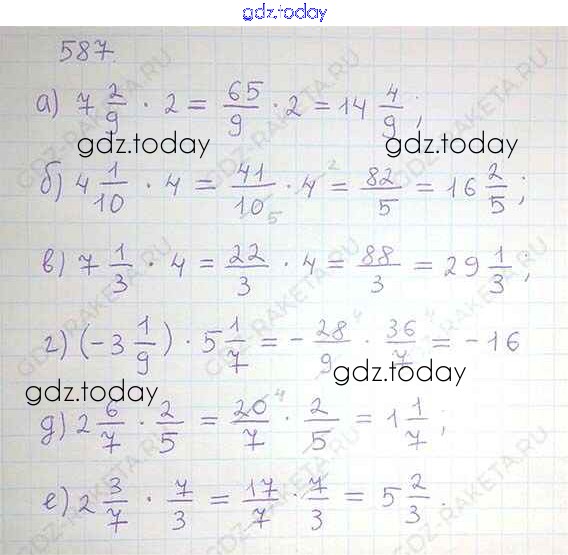 gdz.today
587.
а) 7 2/9 · 2 = 65/9 · 2 = 14 4/9;
gdz.today gdz.today
б) 4 1/10 · 4 = 41/10 5 · 4 2 = 82/5 = 16 2/5;
в) 7 1/3 · 4 = 22/3 · 4 = 88/3 = 29 1/3;
г) (-3 1/9) · 5 1/7 = - 28/9 4 · 36/7 4 = -16
gdz.today gdz.today
д) 2 6/7 · 2/5 = 20/7 4 · 2/5 = 1 1/7;
е) 2 3/7 · 7/3 = 17/7 · 7/3 = 5 2/3.
GDZ-RAKETA.RU